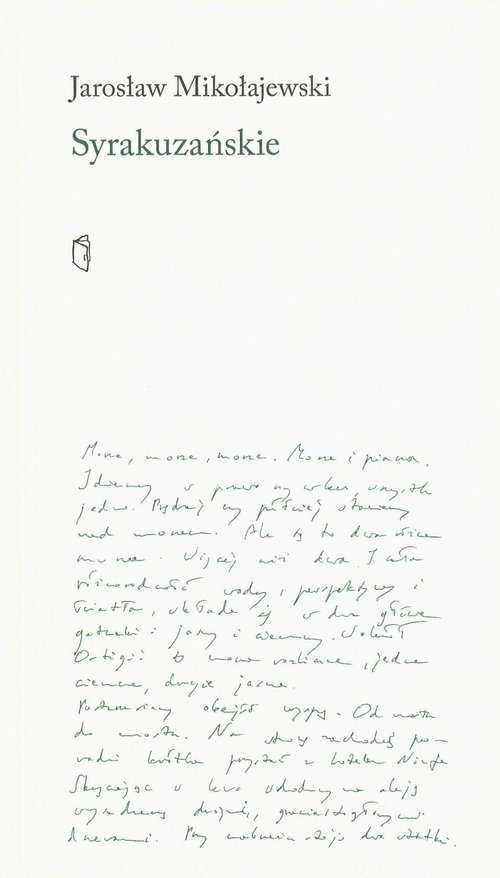 Jarosław Mikołajewski
Syrakuzańskie
Morze, morze, morze. Morze i piana.
Idziemy w prawo czy w lewo, wszystko
jedno. Prędzej czy później staniemy
nad morzem. Ale są to dwa różne
morza. Więcej niż dwa. I cała
różnorodność wody, perspektywy i
światła, układa się w dwa główne
gatunki: jasny i ciemny. Wokół
Ortigii są morza rozliczne, jedne
ciemne, drugie jasne.
Postanawiamy obejść wyspę. Od mostu
do mostu. Na stronę zachodnią pro-
wadzi krótka przez z hotelem
Skręcając w lewo wchodzimy na aleję
wysadzaną
drzewami. Przy nabrzeżu stoją dwa statki.